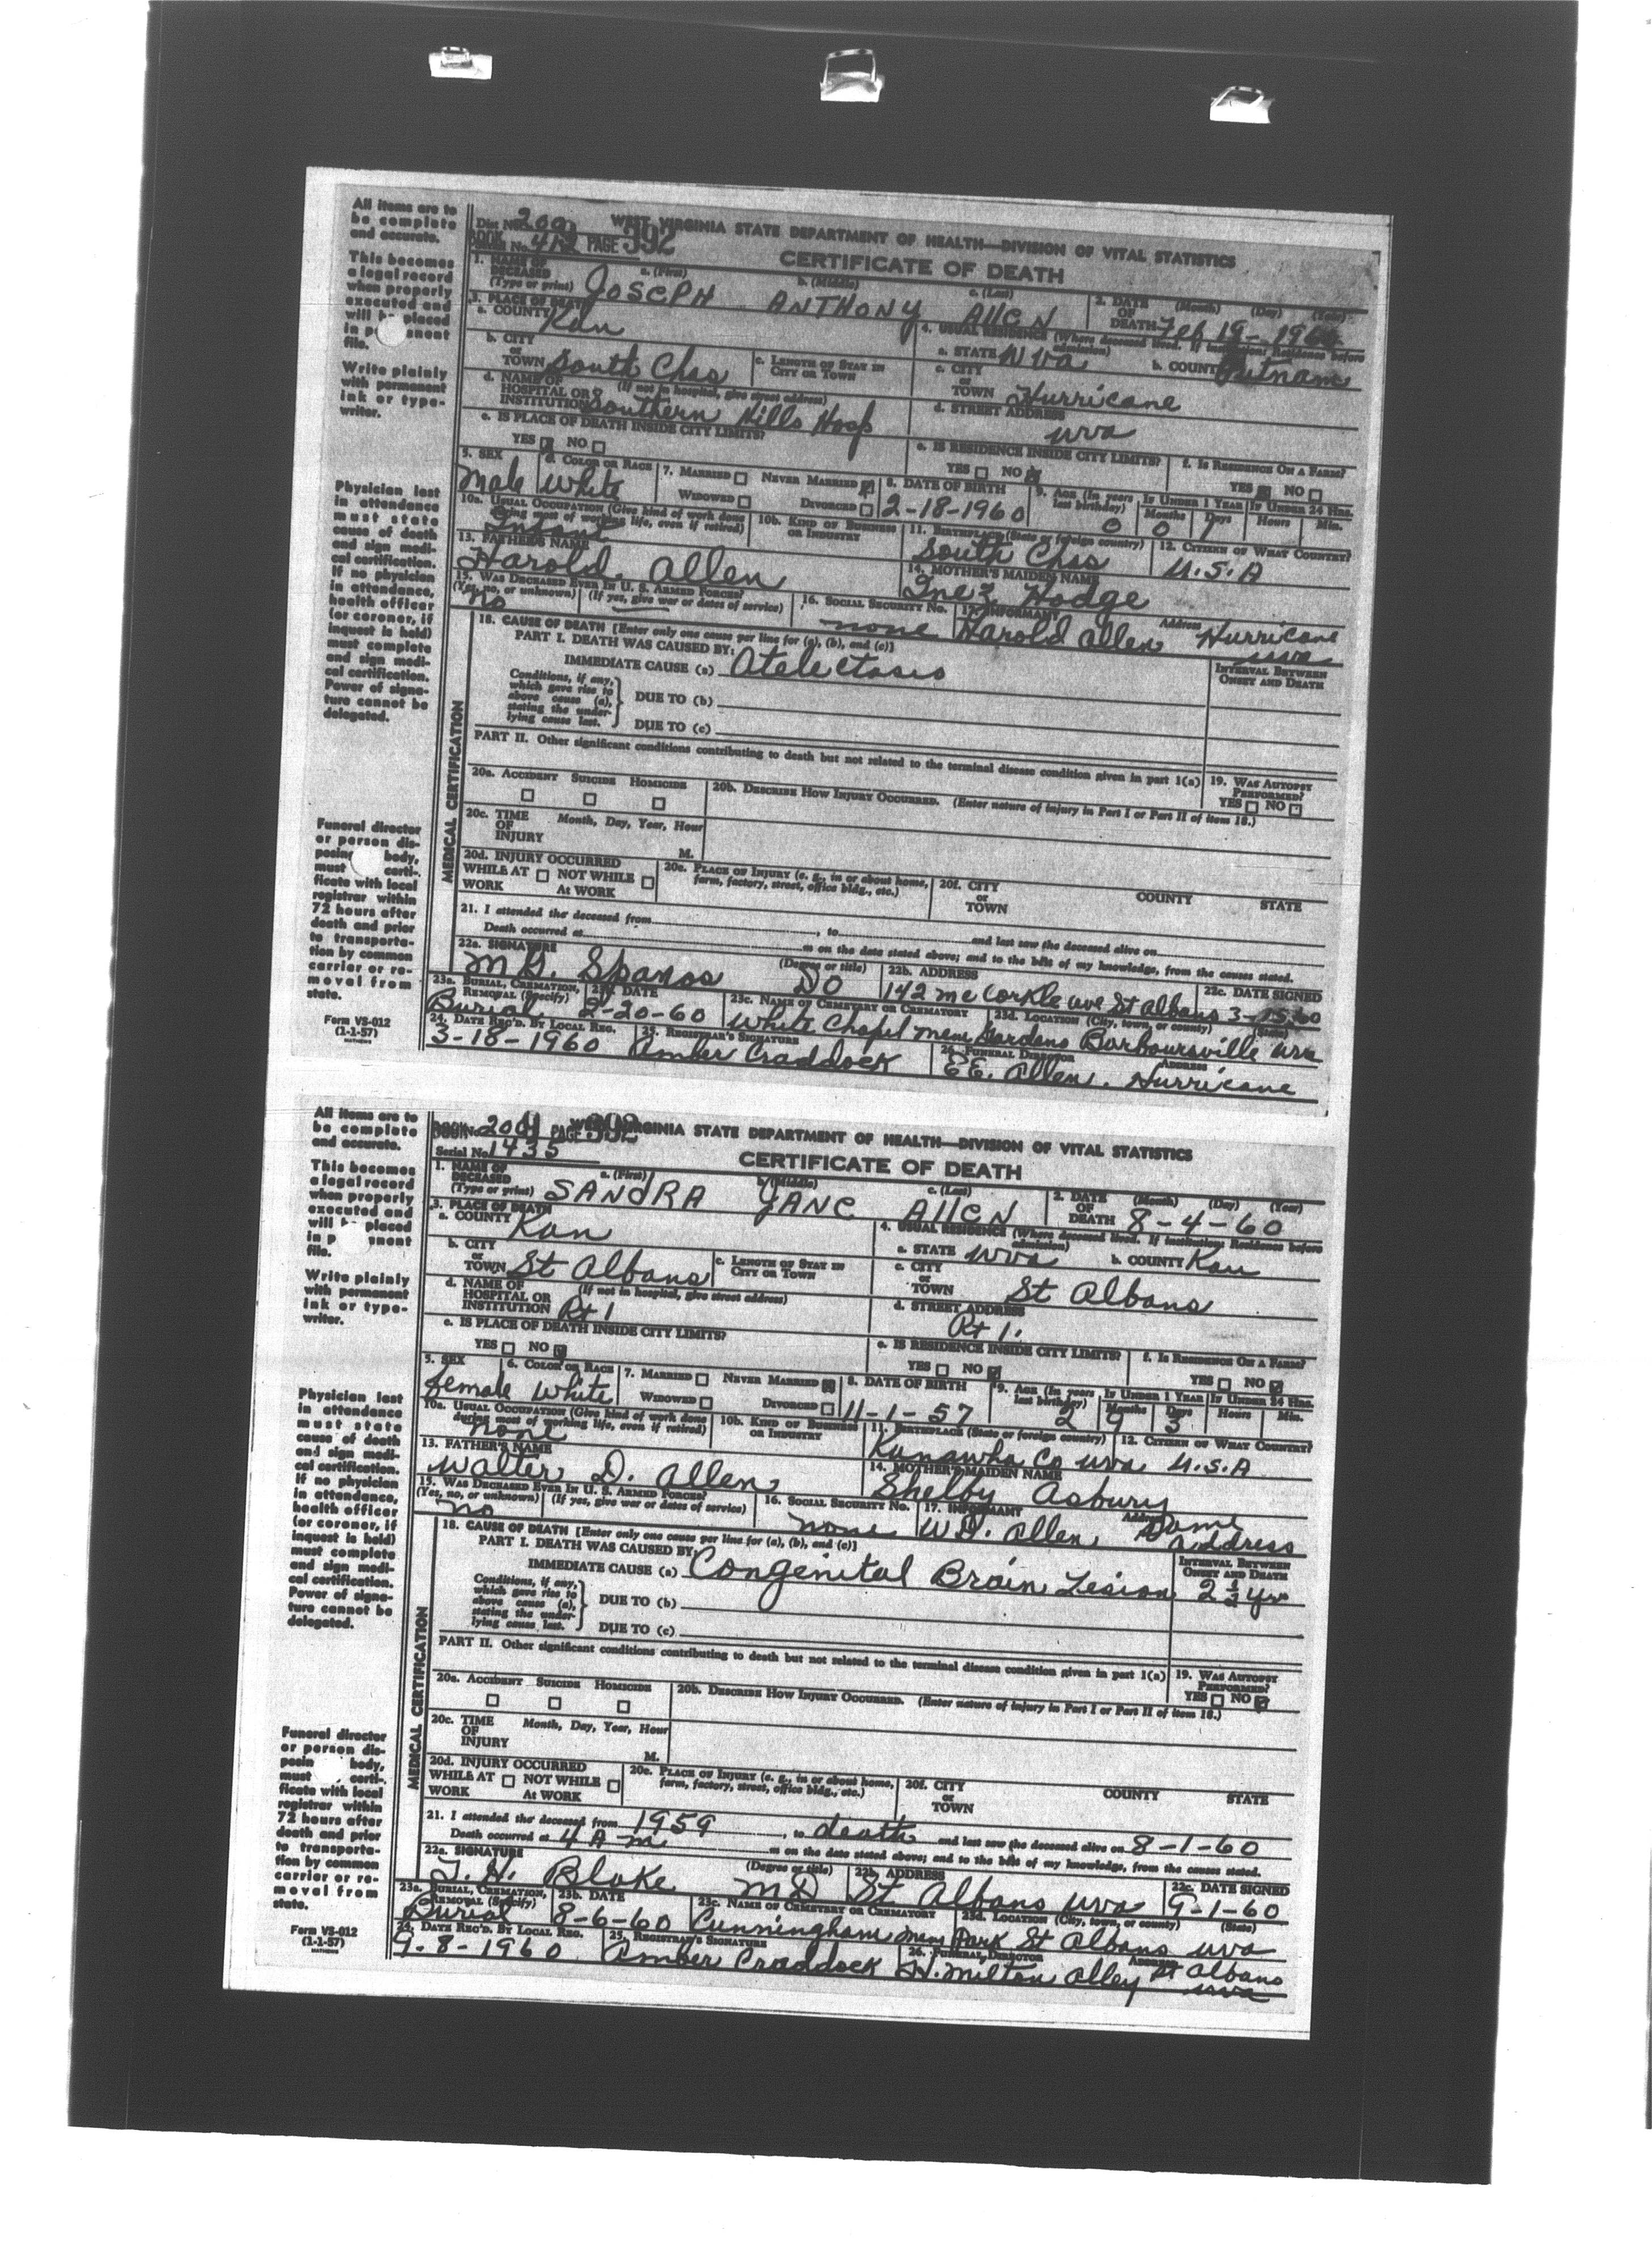 All items are to
be complete
and accurate.
This becomes
a legal record
when properly
executed and
will be placed
in p snent
file.
Write plainly
with permanent
ink or type-
writer.
Physician last
in attendance
must state
cause of death
and sign medi-
cal certification.
If no physician
in attendance,
health officer
(or coroner, if
inquest is held)
must complete
and sign medi-
cal certification.
Power of signa-
ture cannot be
delegated.
Funeral director
or person dis-
posing body,
must certi-
ficate with local
registrar within
72 hours after
death and prior
to transporta-
tion by common
carrier or re-
moval from
state.
Form VS-012
(1-1-57)
MATHEWS
WEST VIRGINIA STATE DEPARTMENT OF HEALTH—DIVISION OF VITAL STATISTICS
PAGE 392
CERTIFICATE OF DEATH
1. NAME OF DECEASED (Type or print) a. (First) b. (Middle) c. (Last)
JOSEPH ANTHONY ALLEN
2. DATE OF DEATH (Month) (Day) (Year) Feb 19-1960
3. PLACE OF DEATH
a. COUNTY Kan
4. USUAL RESIDENCE (Where deceased lived. If institution: Residence before admission)
a. STATE WVa b. COUNTY Putnam
b. CITY or TOWN South Chas c. LENGTH OF STAY IN CITY OR TOWN
c. CITY or TOWN Hurricane
d. NAME OF HOSPITAL OR INSTITUTION (If not in hospital, give street address) Southern Hills Hosp
d. STREET ADDRESS wva
e. IS PLACE OF DEATH INSIDE CITY LIMITS? YES NO
e. IS RESIDENCE INSIDE CITY LIMITS? YES NO
f. IS RESIDENCE ON A FARM? YES NO
5. SEX Male
6. COLOR OR RACE White
7. MARRIED NEVER MARRIED WIDOWED DIVORCED
8. DATE OF BIRTH 2-18-1960
9. AGE (In years last birthday) 0 IF UNDER 1 YEAR Months 0 Days 1 IF UNDER 24 HRS. Hours Min.
10a. USUAL OCCUPATION (Give kind of work done during most of working life, even if retired) Infant
10b. KIND OF BUSINESS OR INDUSTRY
11. BIRTHPLACE (State or foreign country) South Chas
12. CITIZEN OF WHAT COUNTRY? U.S.A
13. FATHER'S NAME Harold Allen
14. MOTHER'S MAIDEN NAME Inez Hodge
15. WAS DECEASED EVER IN U. S. ARMED FORCES? (Yes, no, or unknown) (If yes, give war or dates of service) no
16. SOCIAL SECURITY NO. none
17. INFORMANT Address Harold Allen Hurricane wva
18. CAUSE OF DEATH [Enter only one cause per line for (a), (b), and (c)]
PART I. DEATH WAS CAUSED BY:
IMMEDIATE CAUSE (a) Atelectasis
INTERVAL BETWEEN ONSET AND DEATH
Conditions, if any, which gave rise to above cause (a), stating the under-lying cause last.
DUE TO (b)
DUE TO (c)
PART II. Other significant conditions contributing to death but not related to the terminal disease condition given in part 1(a)
19. WAS AUTOPSY PERFORMED? YES NO
20a. ACCIDENT SUICIDE HOMICIDE
20b. DESCRIBE HOW INJURY OCCURRED. (Enter nature of injury in Part I or Part II of item 18.)
20c. TIME OF INJURY Month, Day, Year, Hour M.
20d. INJURY OCCURRED WHILE AT WORK NOT WHILE At WORK
20e. PLACE OF INJURY (e. g., in or about home, farm, factory, street, office bldg., etc.)
20f. CITY or TOWN COUNTY STATE
21. I attended the deceased from , to and last saw the deceased alive on
Death occurred at m on the date stated above; and to the best of my knowledge, from the causes stated.
22a. SIGNATURE (Degree or title) M G. Spanos DO
22b. ADDRESS 142 McCorkle ave St Albans
22c. DATE SIGNED
23a. BURIAL, CREMATION, REMOVAL (Specify) Burial
23b. DATE 2-20-60
23c. NAME OF CEMETARY OR CREMATORY White Chapel Mem Gardens
23d. LOCATION (City, town, or county) (State) Barboursville wva
24. DATE REC'D. BY LOCAL REG. 3-18-1960
25. REGISTRAR'S SIGNATURE Amber Craddock
26. FUNERAL DIRECTOR ADDRESS E.E. Allen. Hurricane
All items are to
be complete
and accurate.
This becomes
a legal record
when properly
executed and
will placed
in p nent
file.
Write plainly
with permanent
ink or type-
writer.
Physician last
in attendance
must state
cause of death
and sign medi-
cal certification.
If no physician
in attendance,
health officer
(or coroner, if
inquest is held)
must complete
and sign medi-
cal certification.
Power of signa-
ture cannot be
delegated.
Funeral director
or person dis-
posin body,
must certi-
ficate with local
registrar within
72 hours after
death and prior
to transporta-
tion by common
carrier or re-
moval from
state.
Form VS-012
(1-1-57)
MATHEWS
WEST VIRGINIA STATE DEPARTMENT OF HEALTH—DIVISION OF VITAL STATISTICS
PAGE 392
Serial No. 1435
CERTIFICATE OF DEATH
1. NAME OF DECEASED (Type or print) a. (First) b. (Middle) c. (Last)
SANDRA JANE ALLEN
2. DATE OF DEATH (Month) (Day) (Year) 8-4-60
3. PLACE OF DEATH
a. COUNTY Kan
4. USUAL RESIDENCE (Where deceased lived. If institution: Residence before admission)
a. STATE wva b. COUNTY Kan
b. CITY or TOWN St Albans c. LENGTH OF STAY IN CITY OR TOWN
c. CITY or TOWN St Albans
d. NAME OF HOSPITAL OR INSTITUTION (If not in hospital, give street address) Rt 1
d. STREET ADDRESS Rt 1.
e. IS PLACE OF DEATH INSIDE CITY LIMITS? YES NO
e. IS RESIDENCE INSIDE CITY LIMITS? YES NO
f. IS RESIDENCE ON A FARM? YES NO
5. SEX female
6. COLOR OR RACE White
7. MARRIED NEVER MARRIED WIDOWED DIVORCED
8. DATE OF BIRTH 11-1-57
9. AGE (In years last birthday) 2 IF UNDER 1 YEAR Months 9 Days 3 IF UNDER 24 HRS. Hours Min.
10a. USUAL OCCUPATION (Give kind of work done during most of working life, even if retired) none
10b. KIND OF BUSINESS OR INDUSTRY
11. BIRTHPLACE (State or foreign country) Kanawha Co wva
12. CITIZEN OF WHAT COUNTRY? U.S.A
13. FATHER'S NAME Walter D. Allen
14. MOTHER'S MAIDEN NAME Shelby Asbury
15. WAS DECEASED EVER IN U. S. ARMED FORCES? (Yes, no, or unknown) (If yes, give war or dates of service) no
16. SOCIAL SECURITY NO. none
17. INFORMANT Address W.D. Allen Same address
18. CAUSE OF DEATH [Enter only one cause per line for (a), (b), and (c)]
PART I. DEATH WAS CAUSED BY:
IMMEDIATE CAUSE (a) Congenital Brain Lesion
INTERVAL BETWEEN ONSET AND DEATH 2 1/2 yr
Conditions, if any, which gave rise to above cause (a), stating the under-lying cause last.
DUE TO (b)
DUE TO (c)
PART II. Other significant conditions contributing to death but not related to the terminal disease condition given in part 1(a)
19. WAS AUTOPSY PERFORMED? YES NO
20a. ACCIDENT SUICIDE HOMICIDE
20b. DESCRIBE HOW INJURY OCCURRED. (Enter nature of injury in Part I or Part II of item 18.)
20c. TIME OF INJURY Month, Day, Year, Hour M.
20d. INJURY OCCURRED WHILE AT WORK NOT WHILE At WORK
20e. PLACE OF INJURY (e. g., in or about home, farm, factory, street, office bldg., etc.)
20f. CITY or TOWN COUNTY STATE
21. I attended the deceased from 1959, to death and last saw the deceased alive on 8-1-60
Death occurred at 4 A m m on the date stated above; and to the best of my knowledge, from the causes stated.
22a. SIGNATURE (Degree or title) T. H. Blake MD
22b. ADDRESS St Albans wva
22c. DATE SIGNED 9-1-60
23a. BURIAL, CREMATION, REMOVAL (Specify) Burial
23b. DATE 8-6-60
23c. NAME OF CEMETARY OR CREMATORY Cunningham Mem Park
23d. LOCATION (City, town, or county) (State) St Albans wva
24. DATE REC'D. BY LOCAL REG. 9-8-1960
25. REGISTRAR'S SIGNATURE Amber Craddock
26. FUNERAL DIRECTOR ADDRESS H. Milton Alley St Albans wva